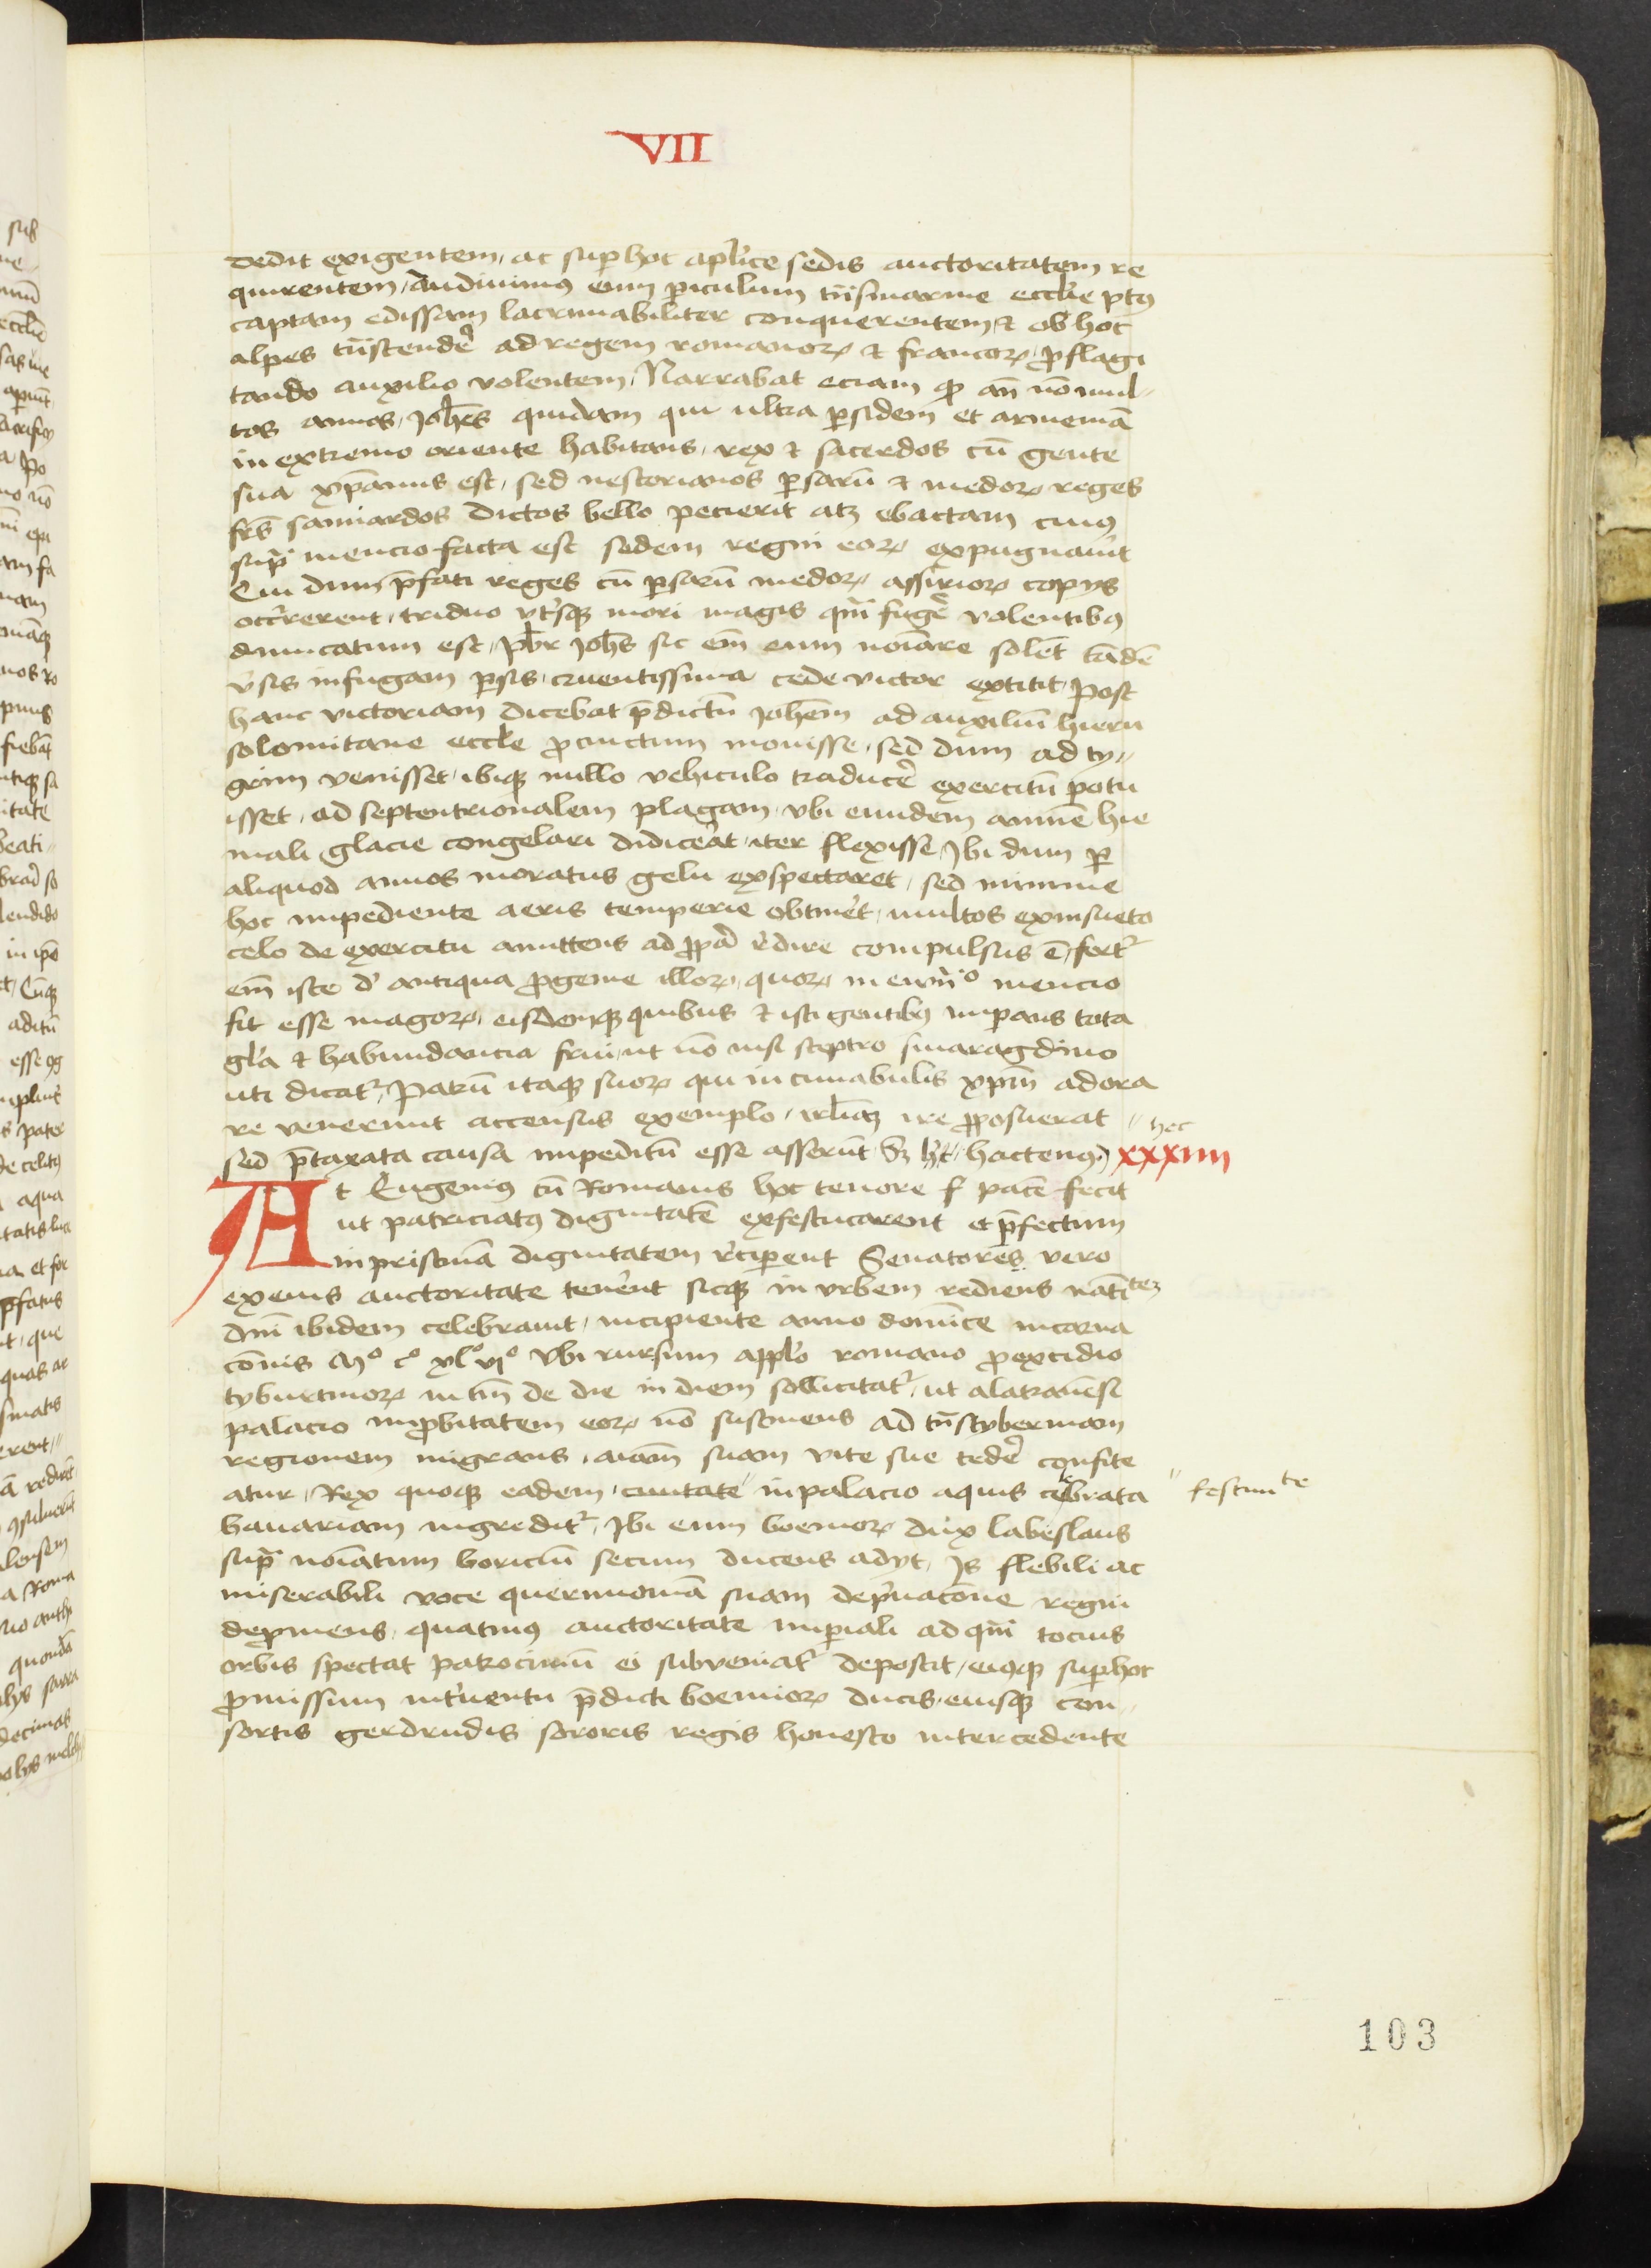 VII
dedit exigentem, ac sup hoc aplice sedis auctoritatem re
quirentem, Audiuimus eum piculum tnsmarine ecclie pt9
captam edissam lacrimabiliter conquerentem, & ob hoc
alpes tnscendere ad regem romanor & francor, pflagi
tando auxilio volentem, Narrabat eciam qd an no mul-
tos annos, Johes quidam qui ultra psidem et armeniā
in extremo oriente habitans, rex & sacerdos cū gente
sua xpianus est, sed nestorianos psarū & medor reges
frs samiardos dictos bello pecierit atz ebactam cuius
supra mencio facta est sedem regni eor expugnauit
Qui dum pfati reges cū psarū medor assirior copys
occrrerent, triduo vtrisq mori magis qm fugere volentibus
dimicatum est, pbr Johes sic em eum noiare solēt tādē
vsis in fugam psis, cruentissima cede victor extitit, Post
hanc victoriam dicebat pdictū Johem ad auxiliū hieru
solomitane eccle pcinctum mouisse, sed dum ad ty-
grim venisset, ibiq nullo vehiculo traducere exercitū potu
isset, ad septentrionalem plagam, vbi eundem amnē hie
mali glacie congelari didicerat, iter flexisse, Ibi dum p
aliquod annos moratus gelu exspectaret, sed minime
hoc impediente aeris temperie obtineret, multos ex insueto
celo de exercitu amittens ad ppa redire compulsus ē, fert
em iste de antiqua pgenie illor, quor in ewangio mencio
fit esse magor, eisdemq quibus & isti gentibus impans tota
gla & habundancia frui, ut no nisi sceptro smaragdino
uti dicat, Patrū itaq suor qui in cunabulis xpm adora
re venerunt accensus exemplo, irlimz ire pposuerat
sed ptaxata causa impeditū esse asserūt, Sz h hactenus, hec XXXIIII
At Eugenius cū Romanis hoc tenore pacē fecit
ut patriciatus dignitatē exfestucarent et pfectum
in pristinā dignitatem rciperent Senatores vero
ex eius auctoritate tenerent sicq in vrbem rediens natitez
dni ibidem celebrauit, incipiente anno dominice incarna
conis Mº cº xlº vjº Vbi rursum applo romano p excidio
tyburtinor in tm de die in diem sollicitat, ut a latranensi
palacio impbitatem eor no sustinens ad tnstyberinam
regionem migrans, aiam suam vite sue tedere confite
atur, Rex quoq eadem, ciuitate in palacio aquis celebrata festiuite
bauariam ingredit, Ibi eum boemor dux labeslaus
supra noiatum boriciū secum ducens adyt, Is flebili ac
miserabili voce querimoniā suam de priuacone regni
depmens, quatinus auctoritate impiali ad qm tocius
orbis spectat patrociniū ei subueniat deposcit, eiusq sup hoc
pmissum intuentu pdicti boemior ducis, eiusq con-
sortis gerdrudis sororis regis honesto intercedente
103